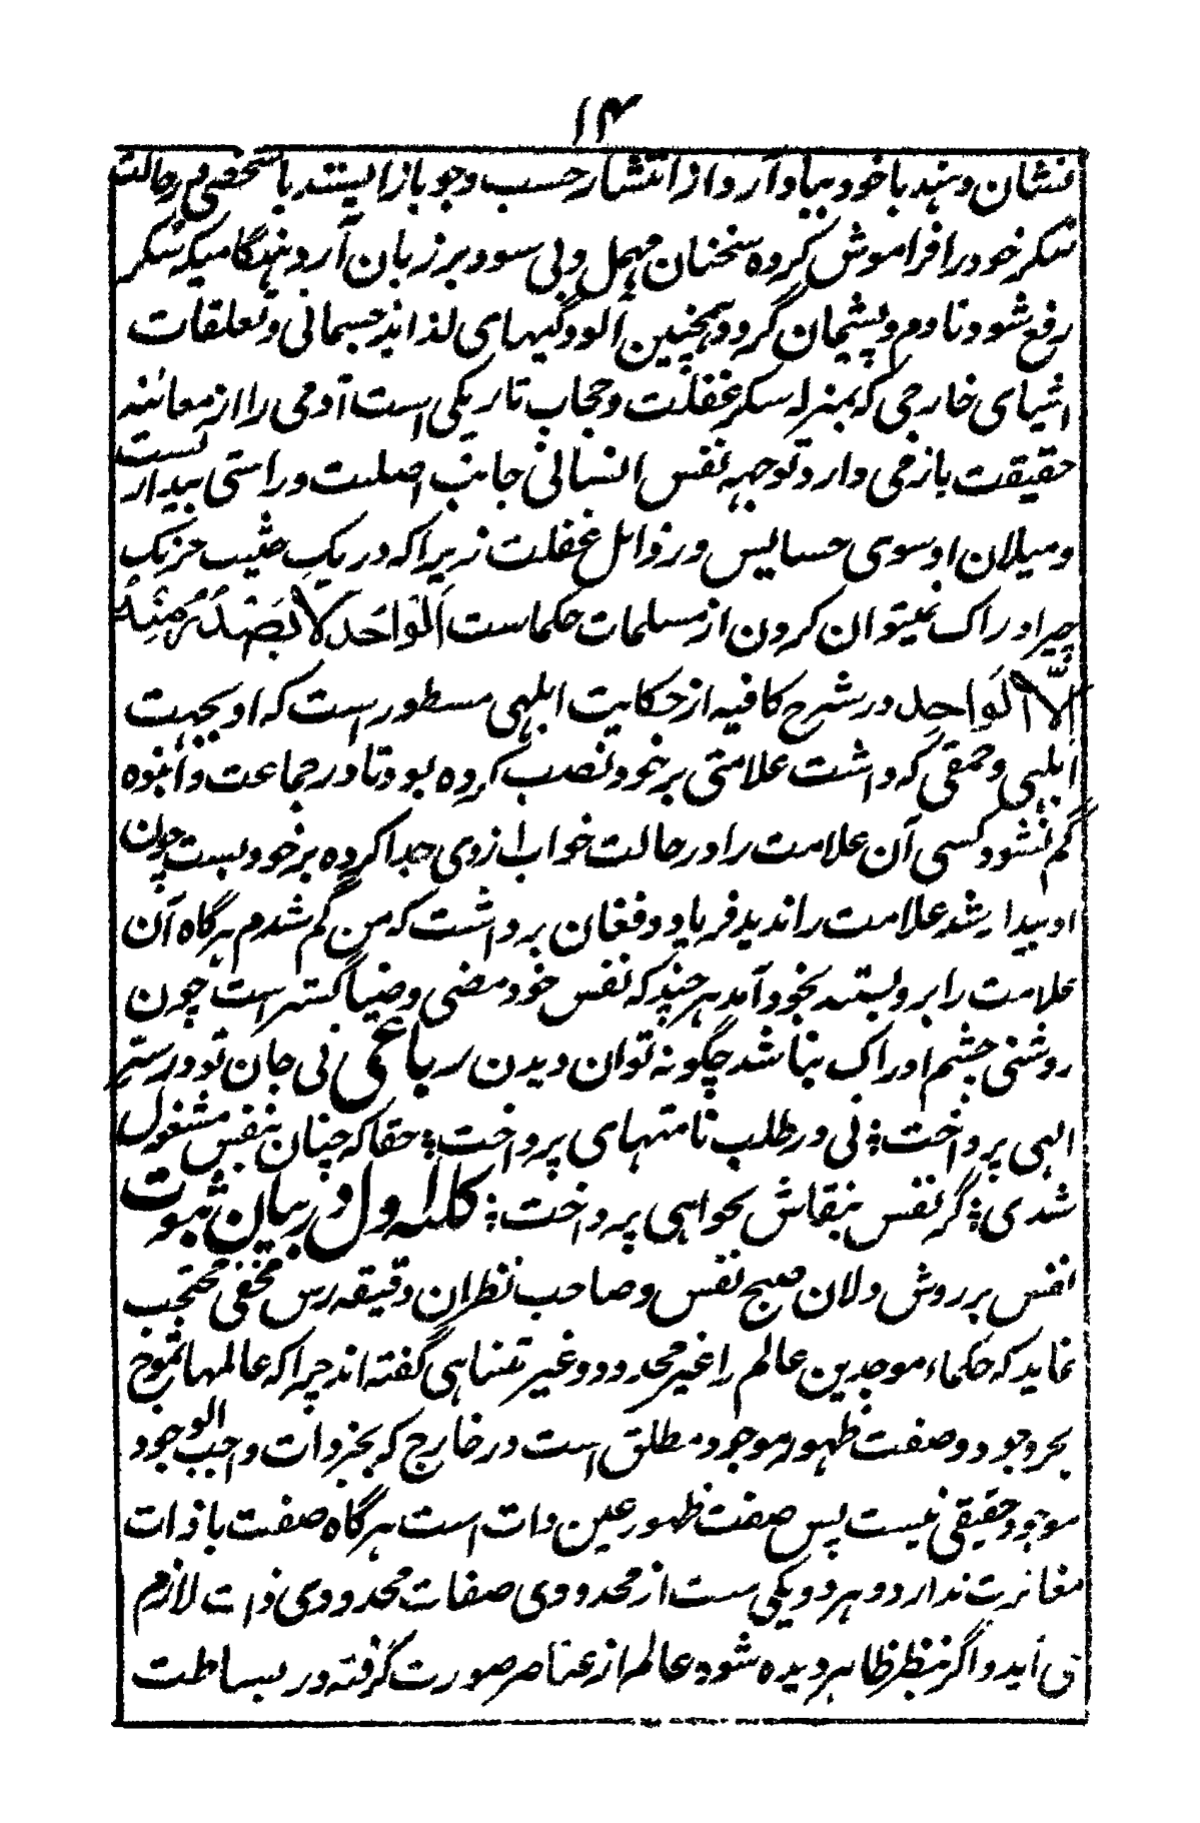 ۱۴
نشان دہند باخود بیاد آرد و از انتشار حسب وجو باز ایستد یا شخصی در حالت
سکر خود را فراموش کرده سخنان مہمل و بی سود بر زبان آرد ہنگامیکہ سکر
رفع شود نادم و پشیمان گردد ہمچنین آلودگیہای لذایذ جسمانی و تعلقات
اشیای خارجی کہ بمنزلہ سکر غفلت و حجاب تاریکی است آدمی را از معائنہ
حقیقت باز می دارد و توجہہ نفس انسانی جانب اصلیت و راستی بیداریست
و میلان او سوی حسایس و رذائل غفلت زیرا کہ در یک حیثیت جز یک
چیز ادراک نمیتوان کردن از مسلمات حکماست اَلوَاحَد لاَ یَصْدُرُ مِنْہُ
اِلّا الوَاحِد در شرح کافیہ از حکایت ابلہی مسطور است کہ او بجہت
ابلہی و حمقی کہ داشت علامتی بر خود نصب کرده بود تا در جماعت و انبوه
گم نشود کسی آن علامت را در حالت خواب از وی جدا کرده بر خود بست چون
او بیدار شد علامت را ندید فریاد و فغان برداشت کہ من گم شدم ہرگاه آن
علامت را برو بستند بخود آمد ہر چند کہ نفس خود مضی و ضیا گستر است چون
روشنی چشم ادراک بناشد چگونہ توان دیدن رباعی نی جان تو در ستر
الہی پرداخت ؛ نی در طلب نامتہای پرداخت ؛ حقا کہ چنان بنفس مشغول
شدی ؛ گر نفس بنقاش بخواہی پرداخت ؛ کلمہ اول در بیان ثبوت
نفس بر روش دلان صبح نفس و صاحب نظران دقیقہ رس مخفی محتجب
نماید کہ حکماء موحدین عالم را غیر محدود و غیر متناہی گفتہ اند چرا کہ عالمہا تموج
بحر وجود و صفت ظہور موجود مطلق است در خارج کہ بجز ذات واجب الوجود
موجود حقیقی نیست پس صفت ظہور عین ذات است ہرگاه صفت با ذات
مغائرت ندارد و ہر دو یکی ست از محدودی صفات محدودی ذات لازم
می آید و اگر بنظر ظاہر دیده شود عالم از عناصر صورت گرفتہ و در بساطت